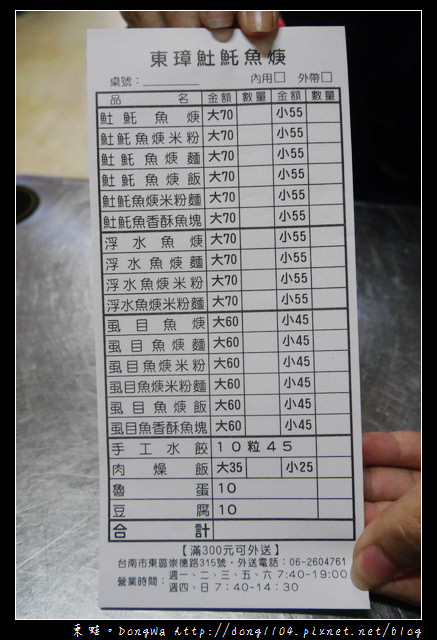 東璋䰾魠魚焿
桌號：________ 內用□ 外帶□
品 名 金額 數量 金額 數量
䰾魠魚焿 大70 小55
䰾魠魚焿米粉 大70 小55
䰾魠魚焿麵 大70 小55
䰾魠魚焿飯 大70 小55
䰾魠魚焿米粉麵 大70 小55
䰾魠魚香酥魚塊 大70 小55
浮水魚焿 大70 小55
浮水魚焿麵 大70 小55
浮水魚焿米粉 大70 小55
浮水魚焿米粉麵 大70 小55
虱目魚焿 大60 小45
虱目魚焿麵 大60 小45
虱目魚焿米粉 大60 小45
虱目魚焿米粉麵 大60 小45
虱目魚焿飯 大60 小45
虱目魚香酥魚塊 大60 小45
手工水餃 10粒45
肉燥飯 大35 小25
魯蛋 10
豆腐 10
合計
【滿300元可外送】
台南市東區崇德路315號・外送電話：06-2604761
營業時間：週一、二、三、五、六 7:40-19:00
週四、日 7:40-14:30
東蛙。DongWa http://dong1104.pixnet.net/blog